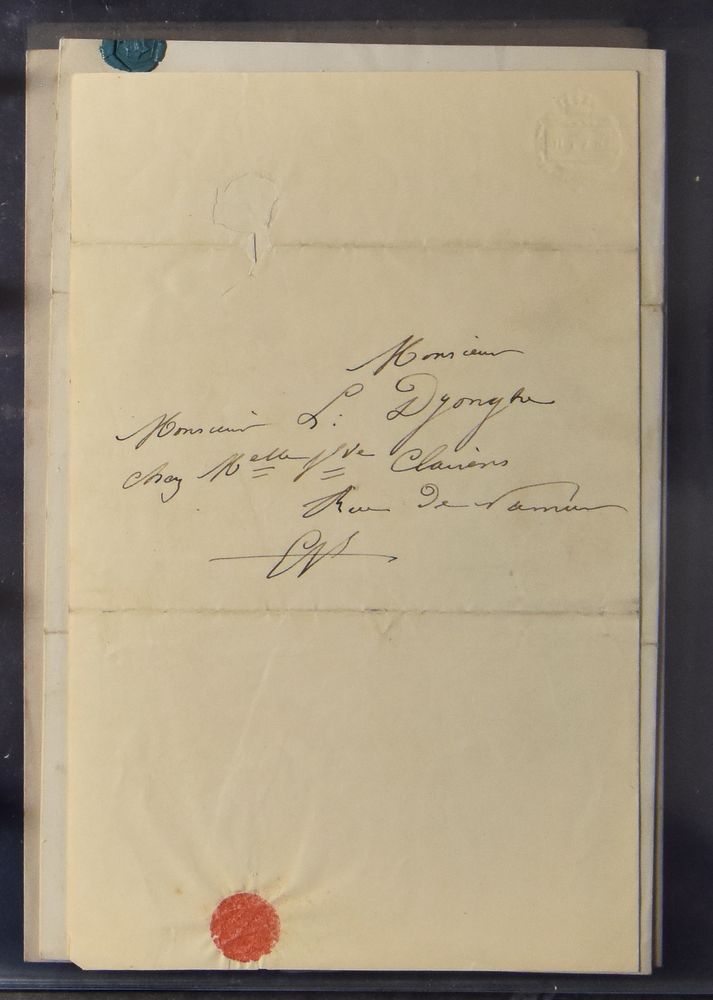 Monsieur
Monsieur L: Dyonghe
chez Melle Clairens
Rue De Namur